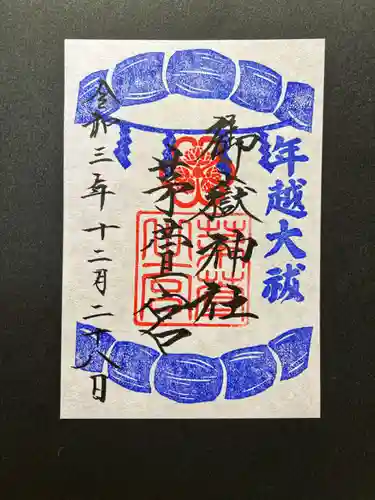 年越大祓
御嶽神社
茅萱宮
令和三年十二月二十八日